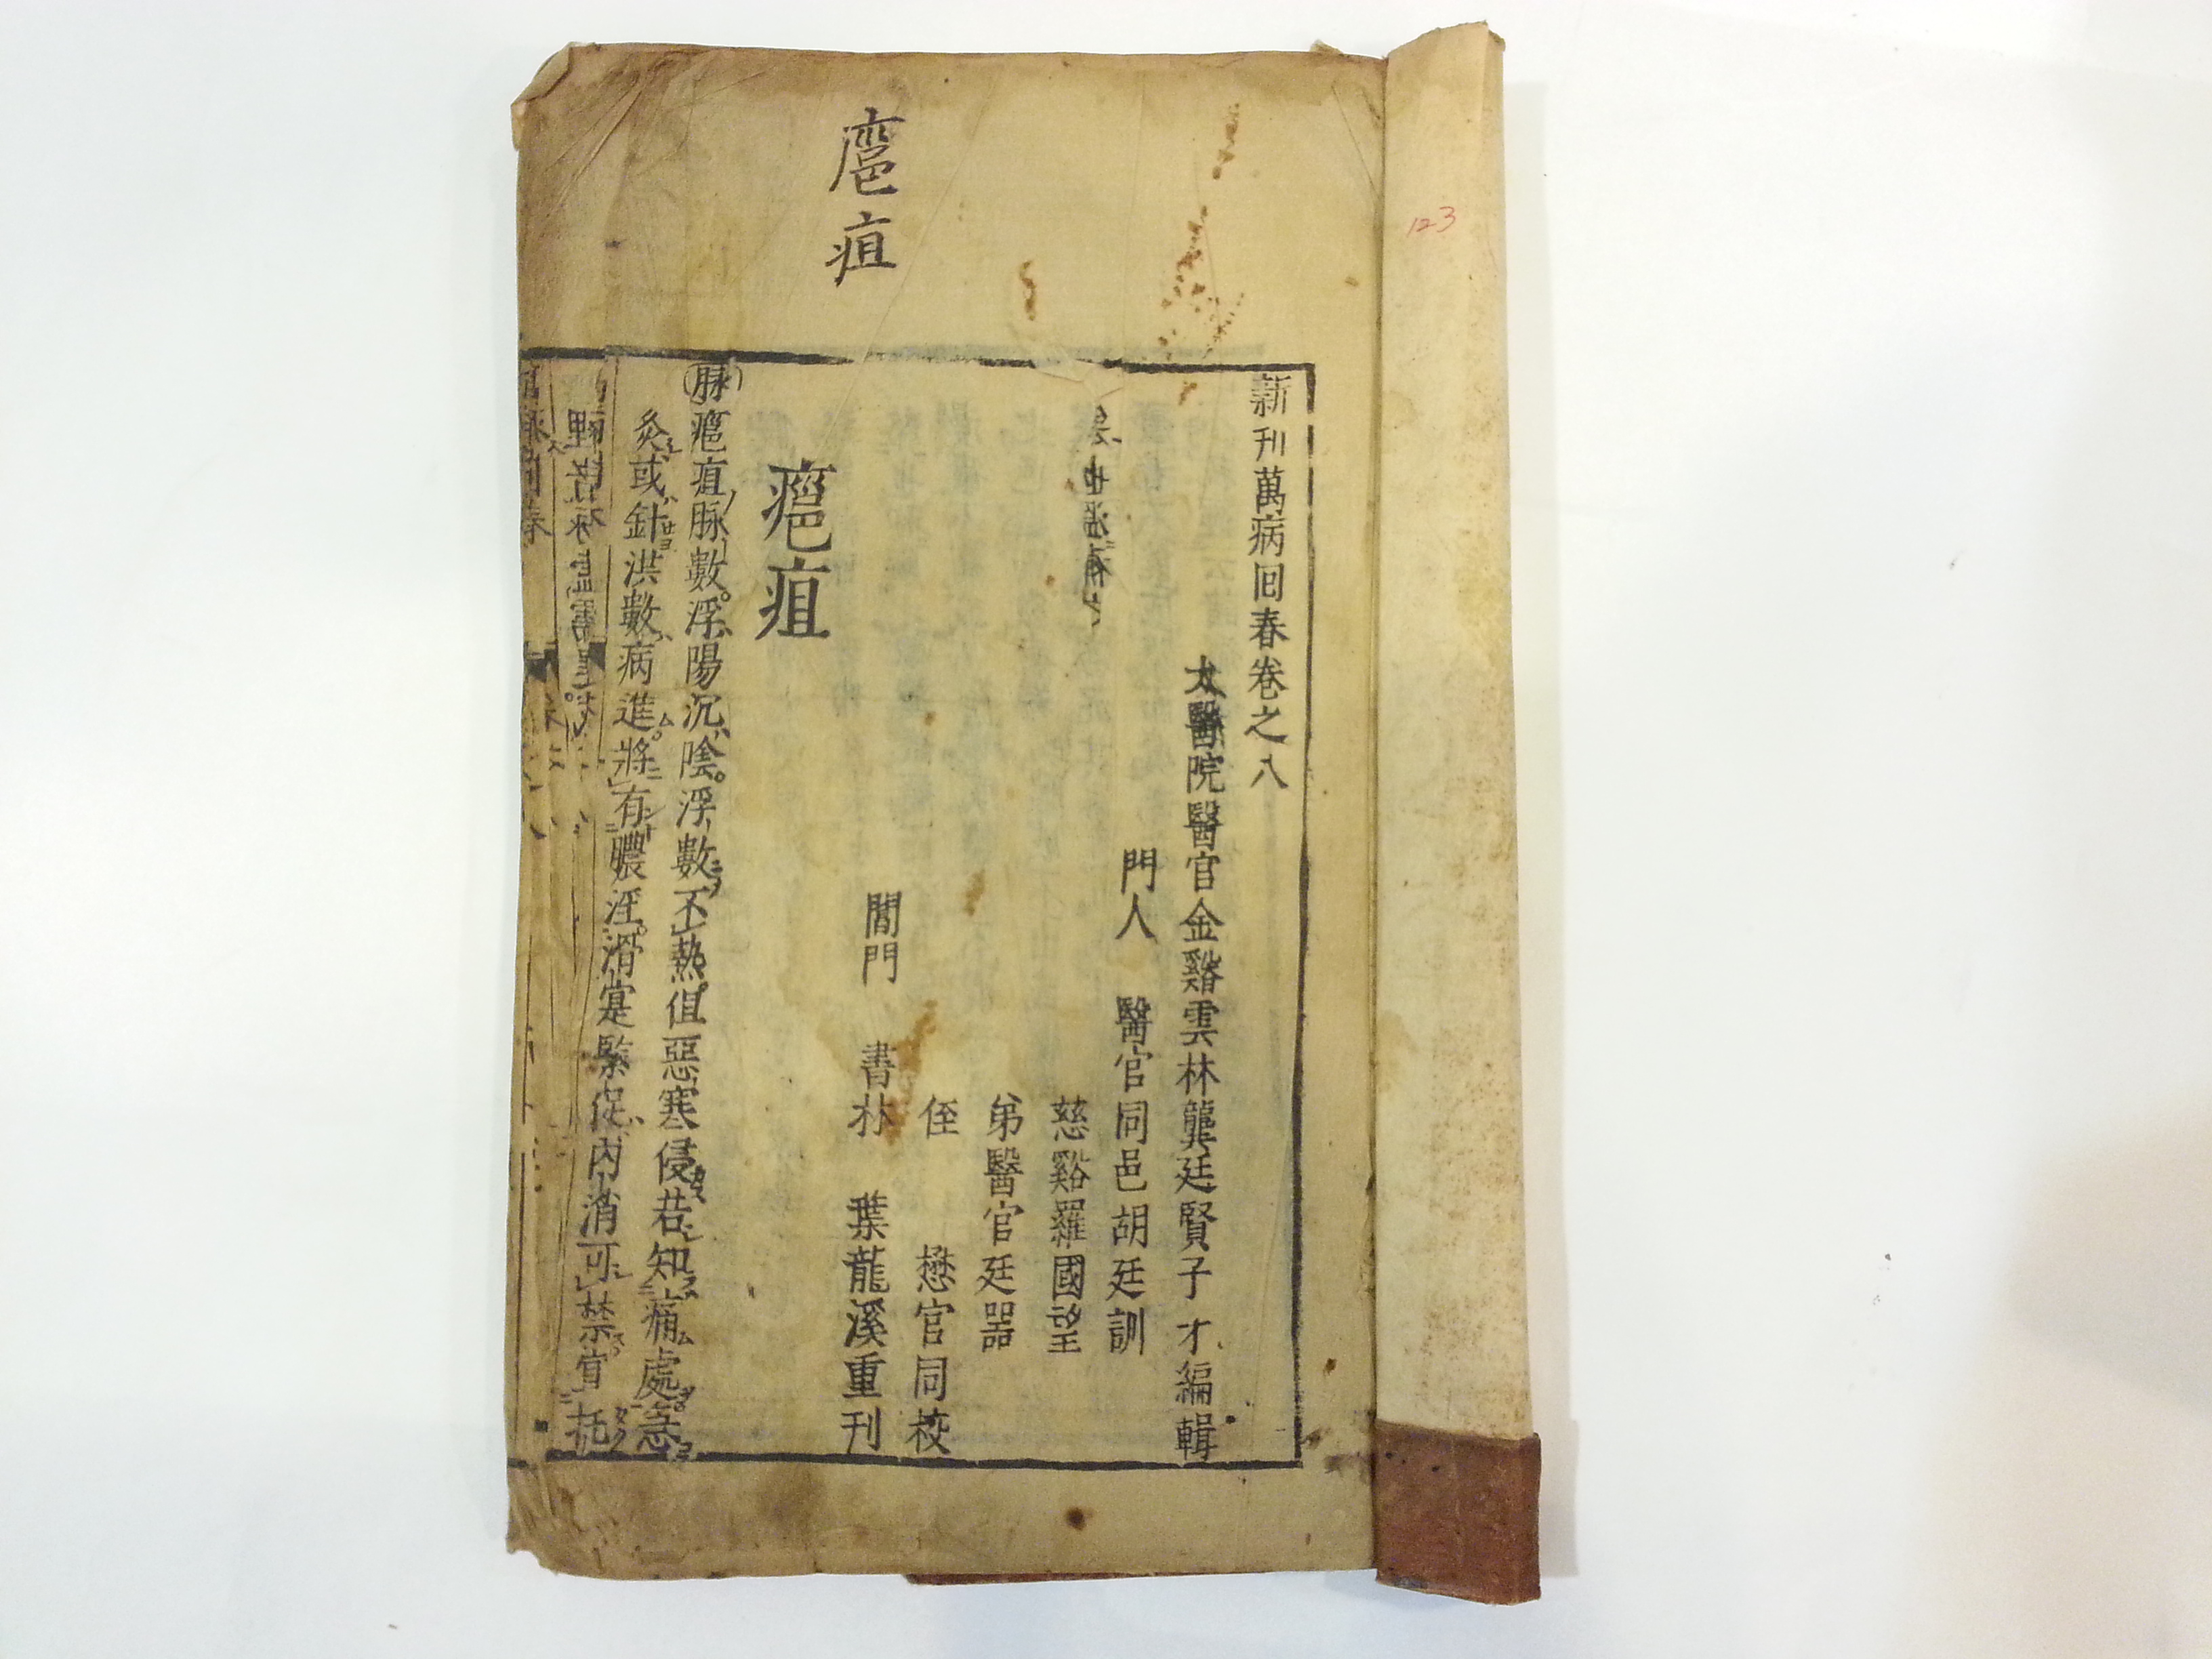 癰疽
123
新刊萬病回春卷之八
太醫院醫官金谿雲林龔廷賢子才編輯
門人 醫官同邑胡廷訓
慈谿羅國望
弟醫官廷器
侄 懋官同校
閶門 書林 葉龍溪重刊
癰疽
脉癰疽脉數浮陽沉陰浮數不熱但惡寒侵若知痛處急
灸或針洪數病進將有膿淫滑寔緊促內消可禁宜托